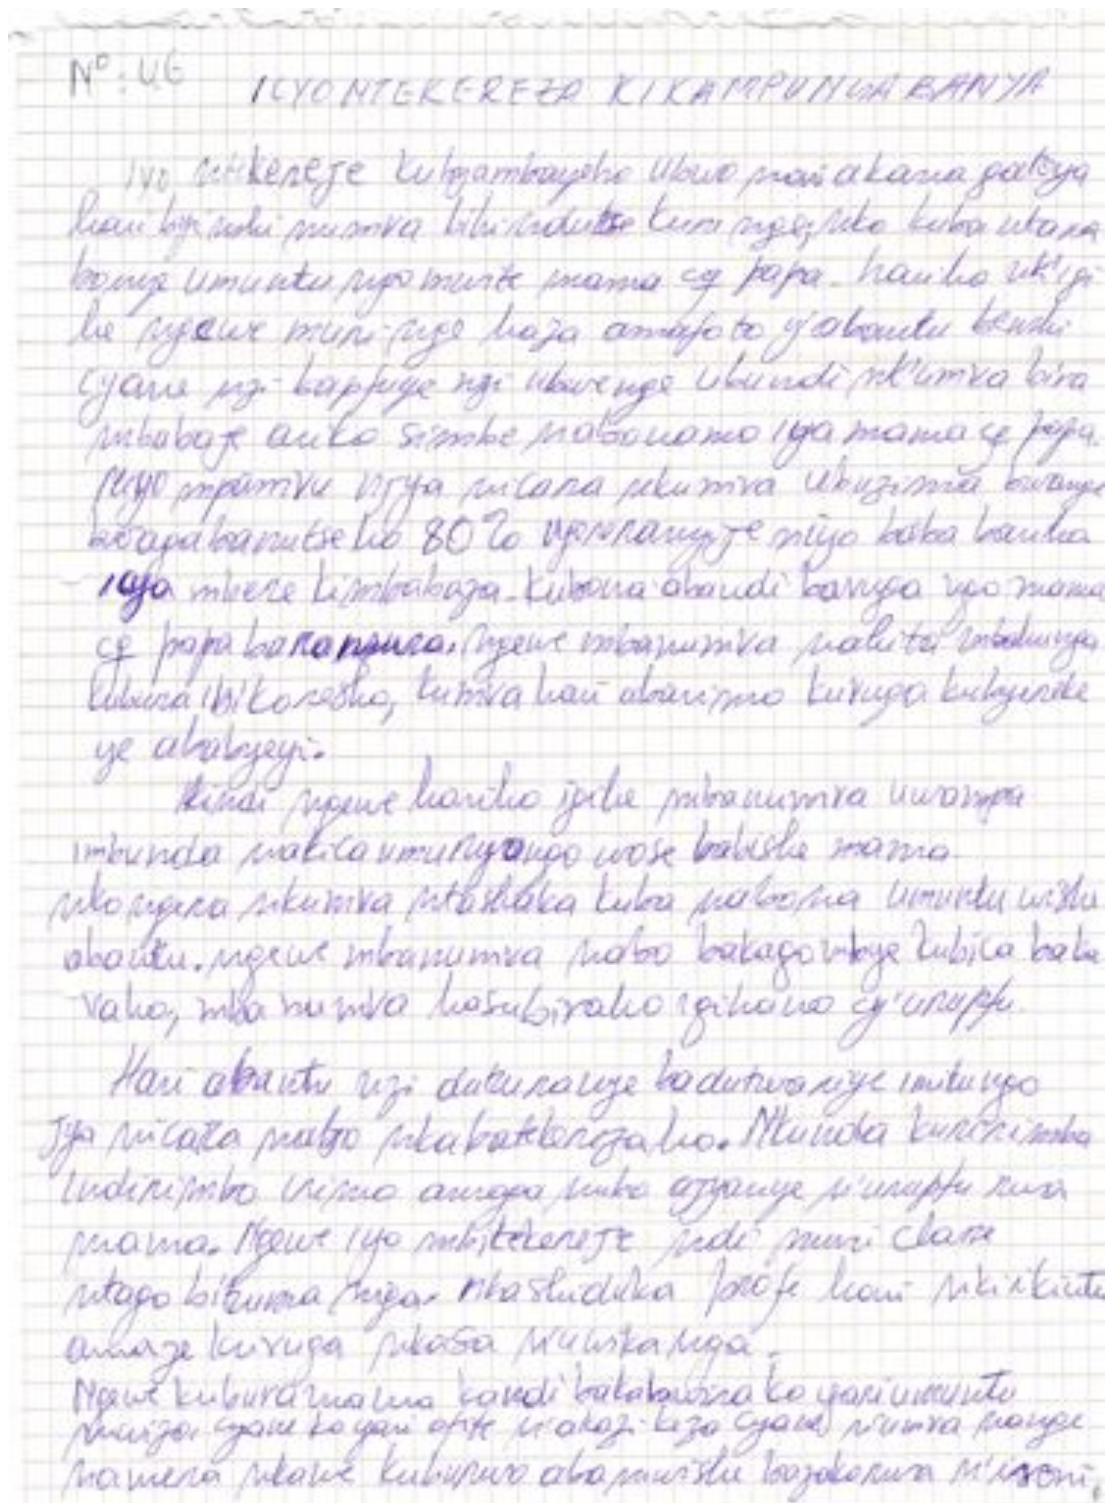 N°: UE
ICYO NTEKEREZA KIKAMPUNGABANYA
Iyo ntekereje kubyambayeho ubwo navi akana gatoya
hari byinshi numva bihindutse kuri njye, nko kuba ntana
bonye umuntu ngo mwite mama cg papa. hariho nk'igi
he ngewe muri njye haza amafoto y'abantu benshi
cyane nzi bapfuye nzi ubwenge ubundi nk'umva bira
mbabaje ariko simbe nabonamo iya mama cg papa.
Niyo mpamvu iyo nicara nkumva ubuzima bwanje
bwagabanutseho 80% niyo baba bariho
iyo mbere kimbabaza. Kubona abandi bavuga ngo mama
cg papa barangura. Ngewe mbanumva
kubura ibikoresho, kumva hari abarimo kuvuga kubyereke
ye ababyeyi.
Kindi ngewe hariho igihe mbanumva uwampa
imbunda nakica umuryango wose babishe mama
nkongera nkumva ntashaka kuba nabona umuntu wishe
abantu. ngewe mbanumva nabo bakagombye kubica baka
vaho, mba numva hasubiraho igihano cy'urupfu.
Hari abantu nzi duturanye badutwariye imitungo
iyo nicara nabyo nkabitekerezaho. Nkunda kuririmba
indirimbo irimo amagambo ajyanye n'urupfu rwa
mama. Ngewe iyo mbitekereje ndi muri classe
ntago bituma niga. nkashiduka profe hari nk'ikintu
amaze kuvuga nkasa n'uwikanga.
Ngewe kubura mama kandi bakabwira ko yari umuntu
mwiza cyane ko yari afite n'akazi keza cyane numva nange
namera nkawe kuburyo abamwishe bazakorwa n'isoni.